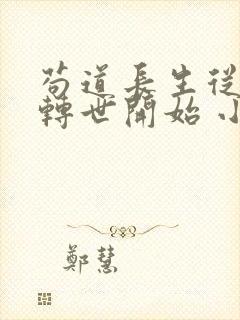 苟道長生從
轉世開始 小
鄭慧